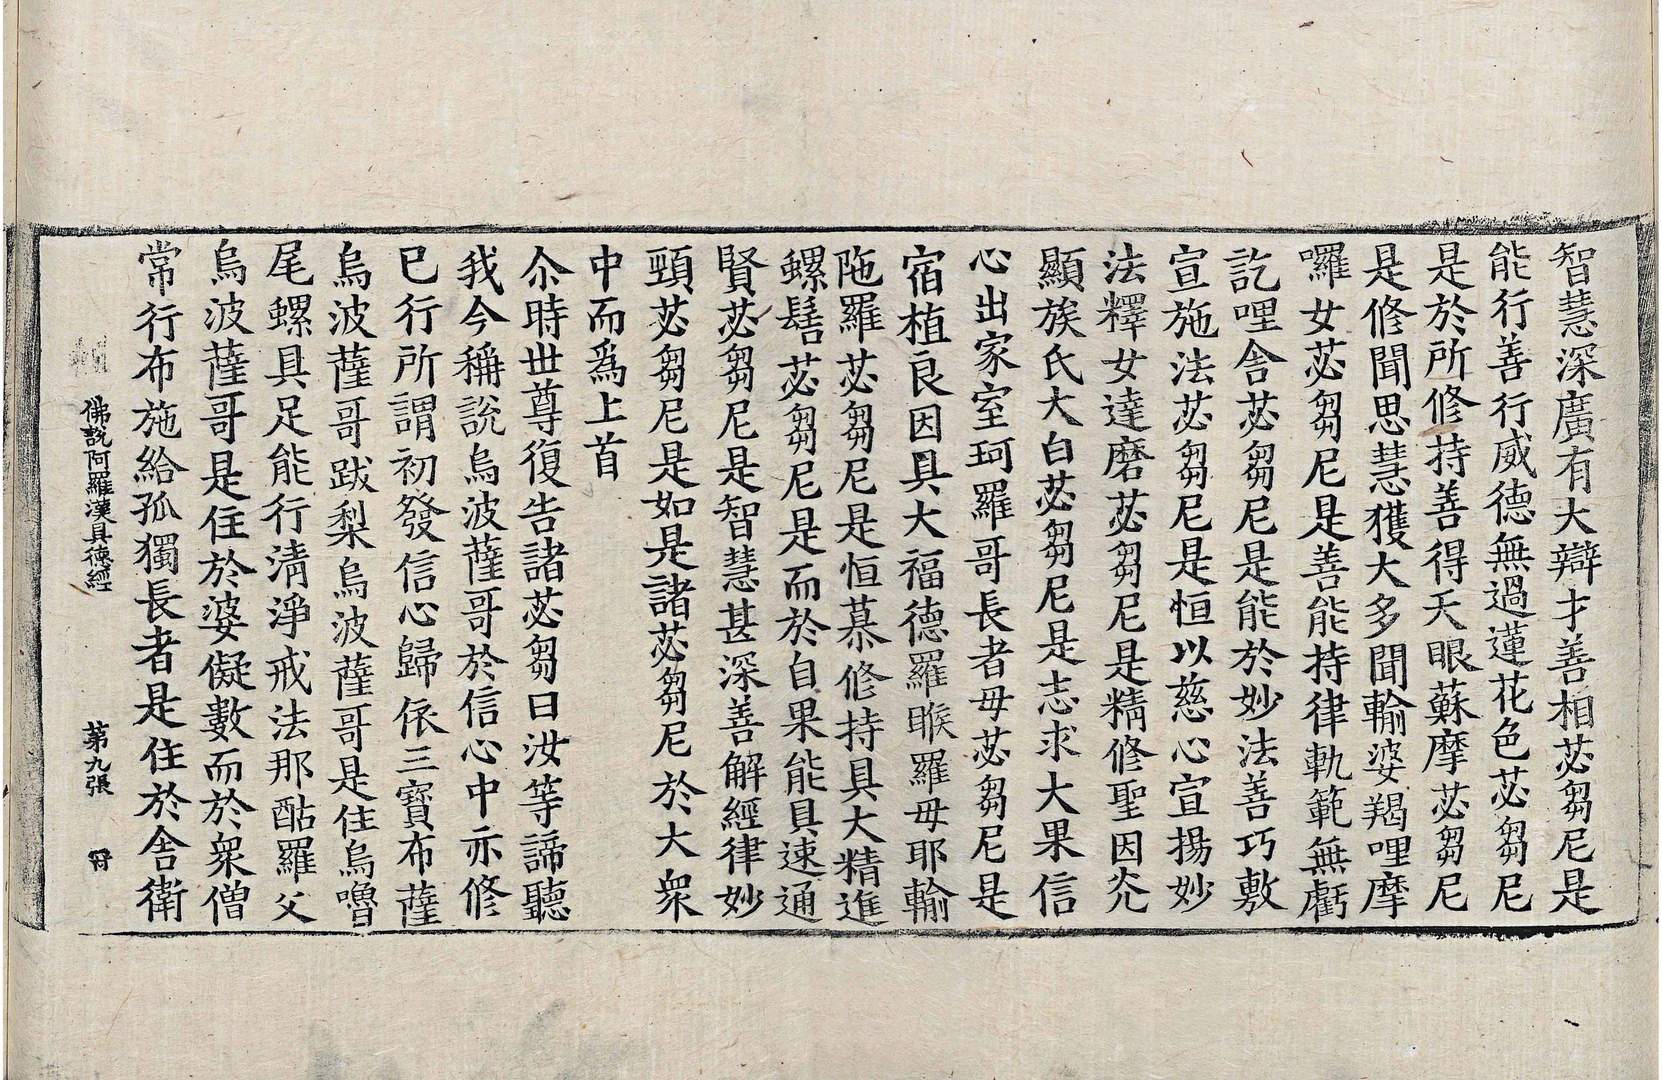 智慧深廣有大辯才善相苾芻尼是
能行善行威德無過蓮花色苾芻尼
是於所修持善得天眼蘇摩苾芻尼
是修聞思慧獲大多聞輸婆羯哩摩
囉女苾芻尼是善能持律軌範無虧
訖哩舍苾芻尼是能於妙法善巧敷
宣施法苾芻尼是恒以慈心宣揚妙
法釋女達磨苾芻尼是精修聖因炎
顯族氏大白苾芻尼是志求大果信
心出家室珂羅哥長者母苾芻尼是
宿植良因具大福德羅睺羅母耶輸
陁羅苾芻尼是恒慕修持具大精進
螺髻苾芻尼是而於自果能具速通
賢苾芻尼是智慧甚深善解經律妙
頸苾芻尼是如是諸苾芻尼於大衆
中而爲上首
尒時世尊復告諸苾芻曰汝等諦聽
我今稱說烏波薩哥於信心中亦修
已行所謂初發信心歸依三寶布薩
烏波薩哥跋梨烏波薩哥是住烏嚕
尾螺具足能行清淨戒法那酤羅父
烏波薩哥是住於婆儗數而於衆僧
常行布施給孤獨長者是住於舍衛
佛説阿羅漢具德經 第九張